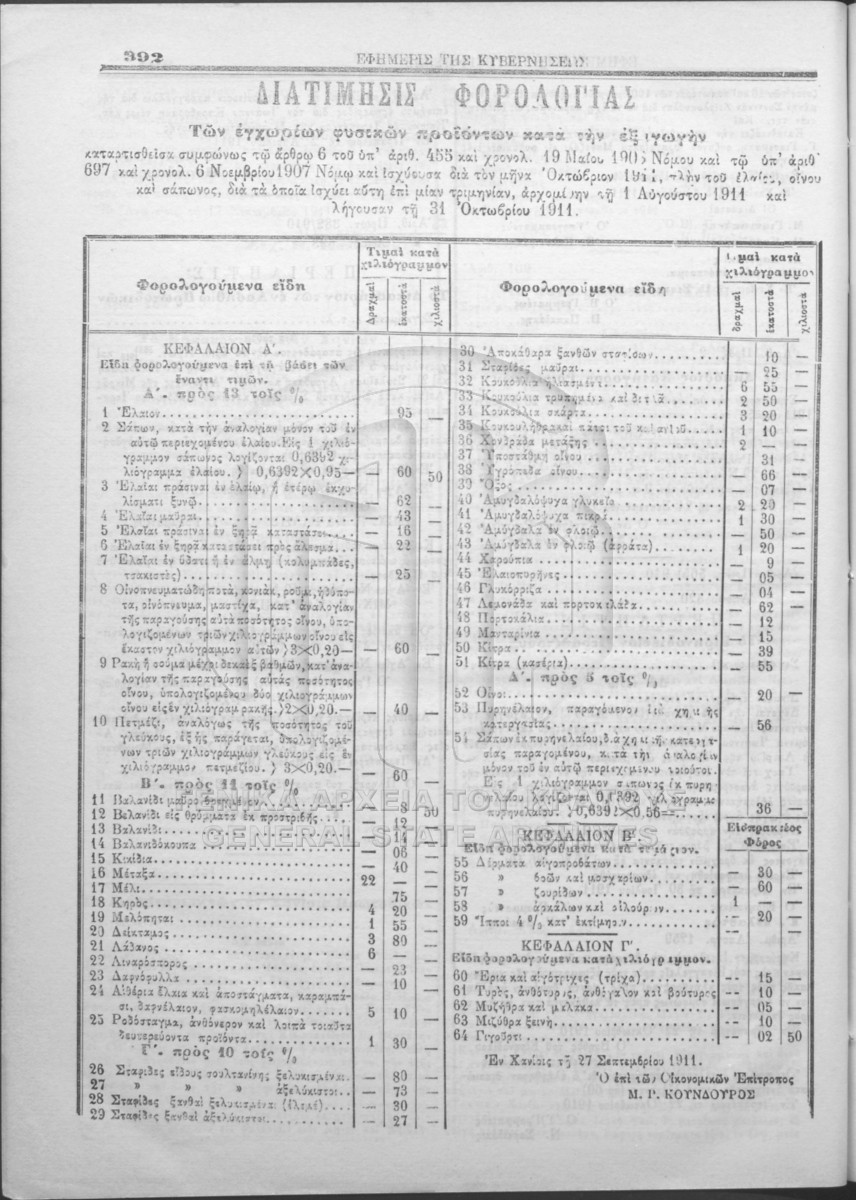 392
ΕΦΗΜΕΡΙΣ ΤΗΣ ΚΥΒΕΡΝΗΣΕΩΣ
ΔΙΑΤΙΜΗΣΙΣ ΦΟΡΟΛΟΓΙΑΣ
Τῶν ἐγχωρίων φυσικῶν προϊόντων κατὰ τὴν ἐξαγωγὴν
καταρτισθεῖσα συμφώνως τῷ ἄρθρῳ 6 τοῦ ὑπ' ἀριθ. 455 καὶ χρονολ. 19 Μαΐου Νόμου καὶ τῷ ὑπ' ἀριθ
697 καὶ χρονολ. 6 Νοεμβρίου 1907 Νόμῳ καὶ ἰσχύουσα διὰ τὸν μῆνα Ὀκτώβριον 1911, πλὴν τοῦ ἐλαίου, οἴνου
καὶ σάπωνος, διὰ τὰ ὁποῖα ἰσχύει αὕτη ἐπὶ μίαν τριμηνίαν, ἀρχομένην τῇ 1 Αὐγούστου 1911 καὶ
λήγουσαν τῇ 31 Ὀκτωβρίου 1911.
Φορολογούμενα εἴδη
Τιμαὶ κατὰ χιλιόγραμμον
Δραχμαὶ ἑκατοστὰ χιλιοστὰ
ΚΕΦΑΛΑΙΟΝ Α΄.
Εἴδη φορολογούμενα ἐπὶ τῇ βάσει τῶν
ἔναντι τιμῶν.
Α΄. πρὸς 13 τοῖς %
1 Ἔλαιον 95 —
2 Σάπων, κατὰ τὴν ἀναλογίαν μόνον τοῦ ἐν
αὐτῷ περιεχομένου ἐλαίου. Εἰς 1 χιλιό-
γραμμον σάπωνος λογίζονται 0,6392 χι-
λιόγραμμα ἐλαίου. 0,6392×0,95— — 60 50
3 Ἐλαῖαι πράσιναι ἐν ἐλαίῳ, ἢ ἑτέρῳ ἐκχυ-
λίσματι ξυνῷ — 62 —
4 Ἐλαῖαι μαῦραι — 43 —
5 Ἐλαῖαι πράσιναι ἐν ξηρᾷ καταστάσει — 16 —
6 Ἐλαῖαι ἐν ξηρᾷ καταστάσει πρὸς ἄλεσμα — 22 —
7 Ἐλαῖαι ἐν ὕδατι ἢ ἐν ἅλμῃ (κολυμπάδες,
τσακιστὲς) — 25 —
8 Οἰνοπνευματώδη ποτὰ, κονιὰκ, ροῦμι, ἡδύπο-
τα, οἰνόπνευμα, μαστίχα, κατ' ἀναλογίαν
τῆς παραγούσης αὐτὰ ποσότητος οἴνου, ὑπο-
λογιζομένων τριῶν χιλιογράμμων οἴνου εἰς
ἕκαστον χιλιόγραμμον αὐτῶν 3×0,20 — 60 —
9 Ρακὴ ἢ σούμα μέχρι δεκαὲξ βαθμῶν, κατ' ἀνα-
λογίαν τῆς παραγούσης αὐτὰς ποσότητος
οἴνου, ὑπολογιζομένου δύο χιλιογράμμων
οἴνου εἰς ἓν χιλιόγραμ ρακῆς. 2×0,20.— — 40 —
10 Πετμέζι, ἀναλόγως τῆς ποσότητος τοῦ
γλεύκους, ἐξ ἧς παράγεται, ὑπολογιζομέ-
νων τριῶν χιλιογράμμων γλεύκους εἰς ἓν
χιλιόγραμμον πετμεζίου. 3×0,20.— 60 —
Β΄. πρὸς 11 τοῖς %
11 Βαλανίδι μαῦρο 8 50
12 Βελανίδι εἰς θρύμματα ἐκ προστριβῆς 12
13 Βαλανίδι 14
14 Βαλανιδόκουπα — 06 —
15 Κικίδια — 40 —
16 Μέταξα 22 — —
17 Μέλι 75
18 Κηρὸς 4 20
19 Μελόπηται 1 55 —
20 Δείκταμος 3 80 —
21 Λάδανος 6 — —
22 Λιναρόσπορος — 23 —
23 Δαφνόφυλλα — 10 —
24 Αἰθέρια ἔλαια καὶ ἀποστάγματα, καραμπά-
σι, δαφνέλαιον, φασκομηλέλαιον 5 10 —
25 Ροδόσταγμα, ἀνθόνερον καὶ λοιπὰ τοιαῦτα
δευτερεύοντα προϊόντα 1 30 —
Γ΄. πρὸς 10 τοῖς %
26 Σταφίδες εἴδους σουλτανίνης ξελυκισμέναι — 80 —
27 » » » ἀξελύκιστοι — 73 —
28 Σταφίδες ξανθαὶ ξελυκισμέναι (ἐλεμὲ) — 30 —
29 Σταφίδες ξανθαὶ ἀξελύκιστοι — 27 —
Φορολογούμενα εἴδη
Τιμαὶ κατὰ χιλιόγραμμον
δραχμαὶ ἑκατοστὰ χιλιοστὰ
30 Ἀποκάθαρα ξανθῶν σταφίδων 10 —
31 Σταφίδες μαῦραι — 25 —
32 Κουκούλια ἡλιασμένα 6 55 —
33 Κουκούλια τρυπημένα καὶ 2 50 —
34 Κουκούλια σκάρτα 3 20 —
35 Κουκουλήθρα καὶ 1 10 —
36 Χονδράδα μετάξης 2 — —
37 Ὑποστάθμη οἴνου 31 —
38 Ὑγροπεδα οἴνου — 66 —
39 Ὄξος — 07 —
40 Ἀμυγδαλόψυχα γλυκεῖα 2 20 —
41 Ἀμυγδαλόψυχα πικρὰ 1 30 —
42 Ἀμύγδαλα ἐν φλοιῷ — 50 —
43 Ἀμύγδαλα ἐν φλοιῷ (ἀφράτα) 1 20 —
44 Χαρούπια — 9 —
45 Ἐλαιοπυρῆνες — 05 —
46 Γλυκόρριζα — 04 —
47 Λεμονάδα καὶ πορτοκαλάδα — 62 —
48 Πορτοκάλια — 12
49 Μανταρίνια — 15
50 Κίτρα — 39
51 Κίτρα (κασέρια) — 55 —
Δ΄. πρὸς 5 τοῖς %
52 Οἶνοι — 20 —
53 Πυρηνέλαιον, παραγόμενον διὰ χημικῆς
κατεργασίας — 56
54 Σάπων ἐκ πυρηνελαίου, διὰ χημικῆς κατεργα-
σίας παραγομένου, κατὰ τὴν ἀναλογίαν
μόνον τοῦ ἐν αὐτῷ περιεχομένου τοιούτου.
Εἰς 1 χιλιόγραμμον σάπωνος ἐκ πυρη-
νελαίου λογίζονται 0,6392 χιλιόγραμμα
πυρηνελαίου. 0,6392×0.56 36 — —
ΚΕΦΑΛΑΙΟΝ Β΄.
Εἰσπρακτέος Φόρος
Εἴδη φορολογούμενα κατὰ τεμάχιον.
55 Δέρματα αἰγοπροβάτων — 30 —
56 » βοῶν καὶ μοσχαρίων — 60 —
57 » ζουρίδων 1 — —
58 » ἀρκάλων καὶ αἰλούρων — 20 —
59 Ἵπποι 4 % κατ' ἐκτίμησιν — — —
ΚΕΦΑΛΑΙΟΝ Γ΄.
Εἴδη φορολογούμενα κατὰ χιλιόγραμμον.
60 Ἔρια καὶ αἰγότριχες (τρίχα) — 15 —
61 Τυρὸς, ἀνθότυρος, ἀνθόγαλον καὶ βούτυρος — 10 —
62 Μυζήθρα καὶ μαλάκα — 05 —
63 Μιζύθρα ξεινὴ — 10 —
64 Γιγοῦρτι — 02 50
Ἐν Χανίοις τῇ 27 Σεπτεμβρίου 1911.
Ὁ ἐπὶ τῶν Οἰκονομικῶν Ἐπίτροπος
Μ. Ρ. ΚΟΥΝΔΟΥΡΟΣ
ΓΕΝΙΚΑ ΑΡΧΕΙΑ ΤΟΥ ΚΡΑΤΟΥΣ
GENERAL STATE ARCHIVES